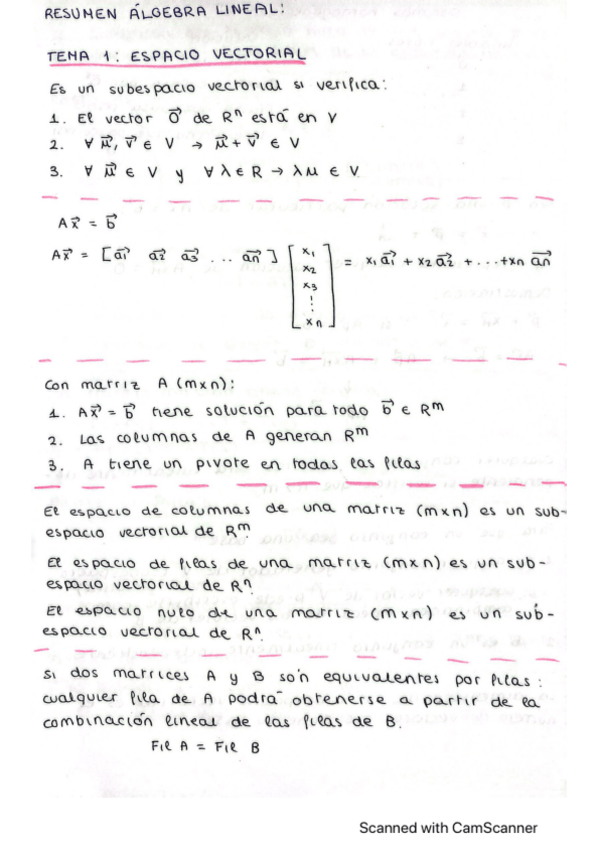 RESUMEN ÁLGEBRA LINEAL:
TEMA 1: ESPACIO VECTORIAL
Es un subespacio vectorial si verifica:
1. El vector $\vec{0}$ de $R^n$ está en V
2. ∀ $\vec{μ}$, $\vec{v}$ ∈ V → $\vec{μ}$ + $\vec{v}$ ∈ V
3. ∀ $\vec{μ}$ ∈ V y ∀ λ ∈ R → λμ ∈ V
A$\vec{x}$ = $\vec{b}$
A$\vec{x}$ = [$\vec{a_1}$ $\vec{a_2}$ $\vec{a_3}$ ... $\vec{a_n}$] [x₁ x₂ x₃ ⋮ xₙ] = x₁$\vec{a_1}$ + x₂$\vec{a_2}$ + ... + xₙ$\vec{a_n}$
Con matriz A (mxn):
1. A$\vec{x}$ = $\vec{b}$ tiene solución para todo $\vec{b}$ ∈ $R^m$
2. Las columnas de A generan $R^m$
3. A tiene un pivote en todas las filas
El espacio de columnas de una matriz (mxn) es un sub-
espacio vectorial de $R^m$.
El espacio de filas de una matriz (mxn) es un sub-
espacio vectorial de $R^n$.
El espacio nulo de una matriz (mxn) es un sub-
espacio vectorial de $R^n$.
Si dos matrices A y B són equivalentes por filas:
cualquier fila de A podrá obtenerse a partir de la
combinación lineal de las filas de B.
Fil A = Fil B
Scanned with CamScanner